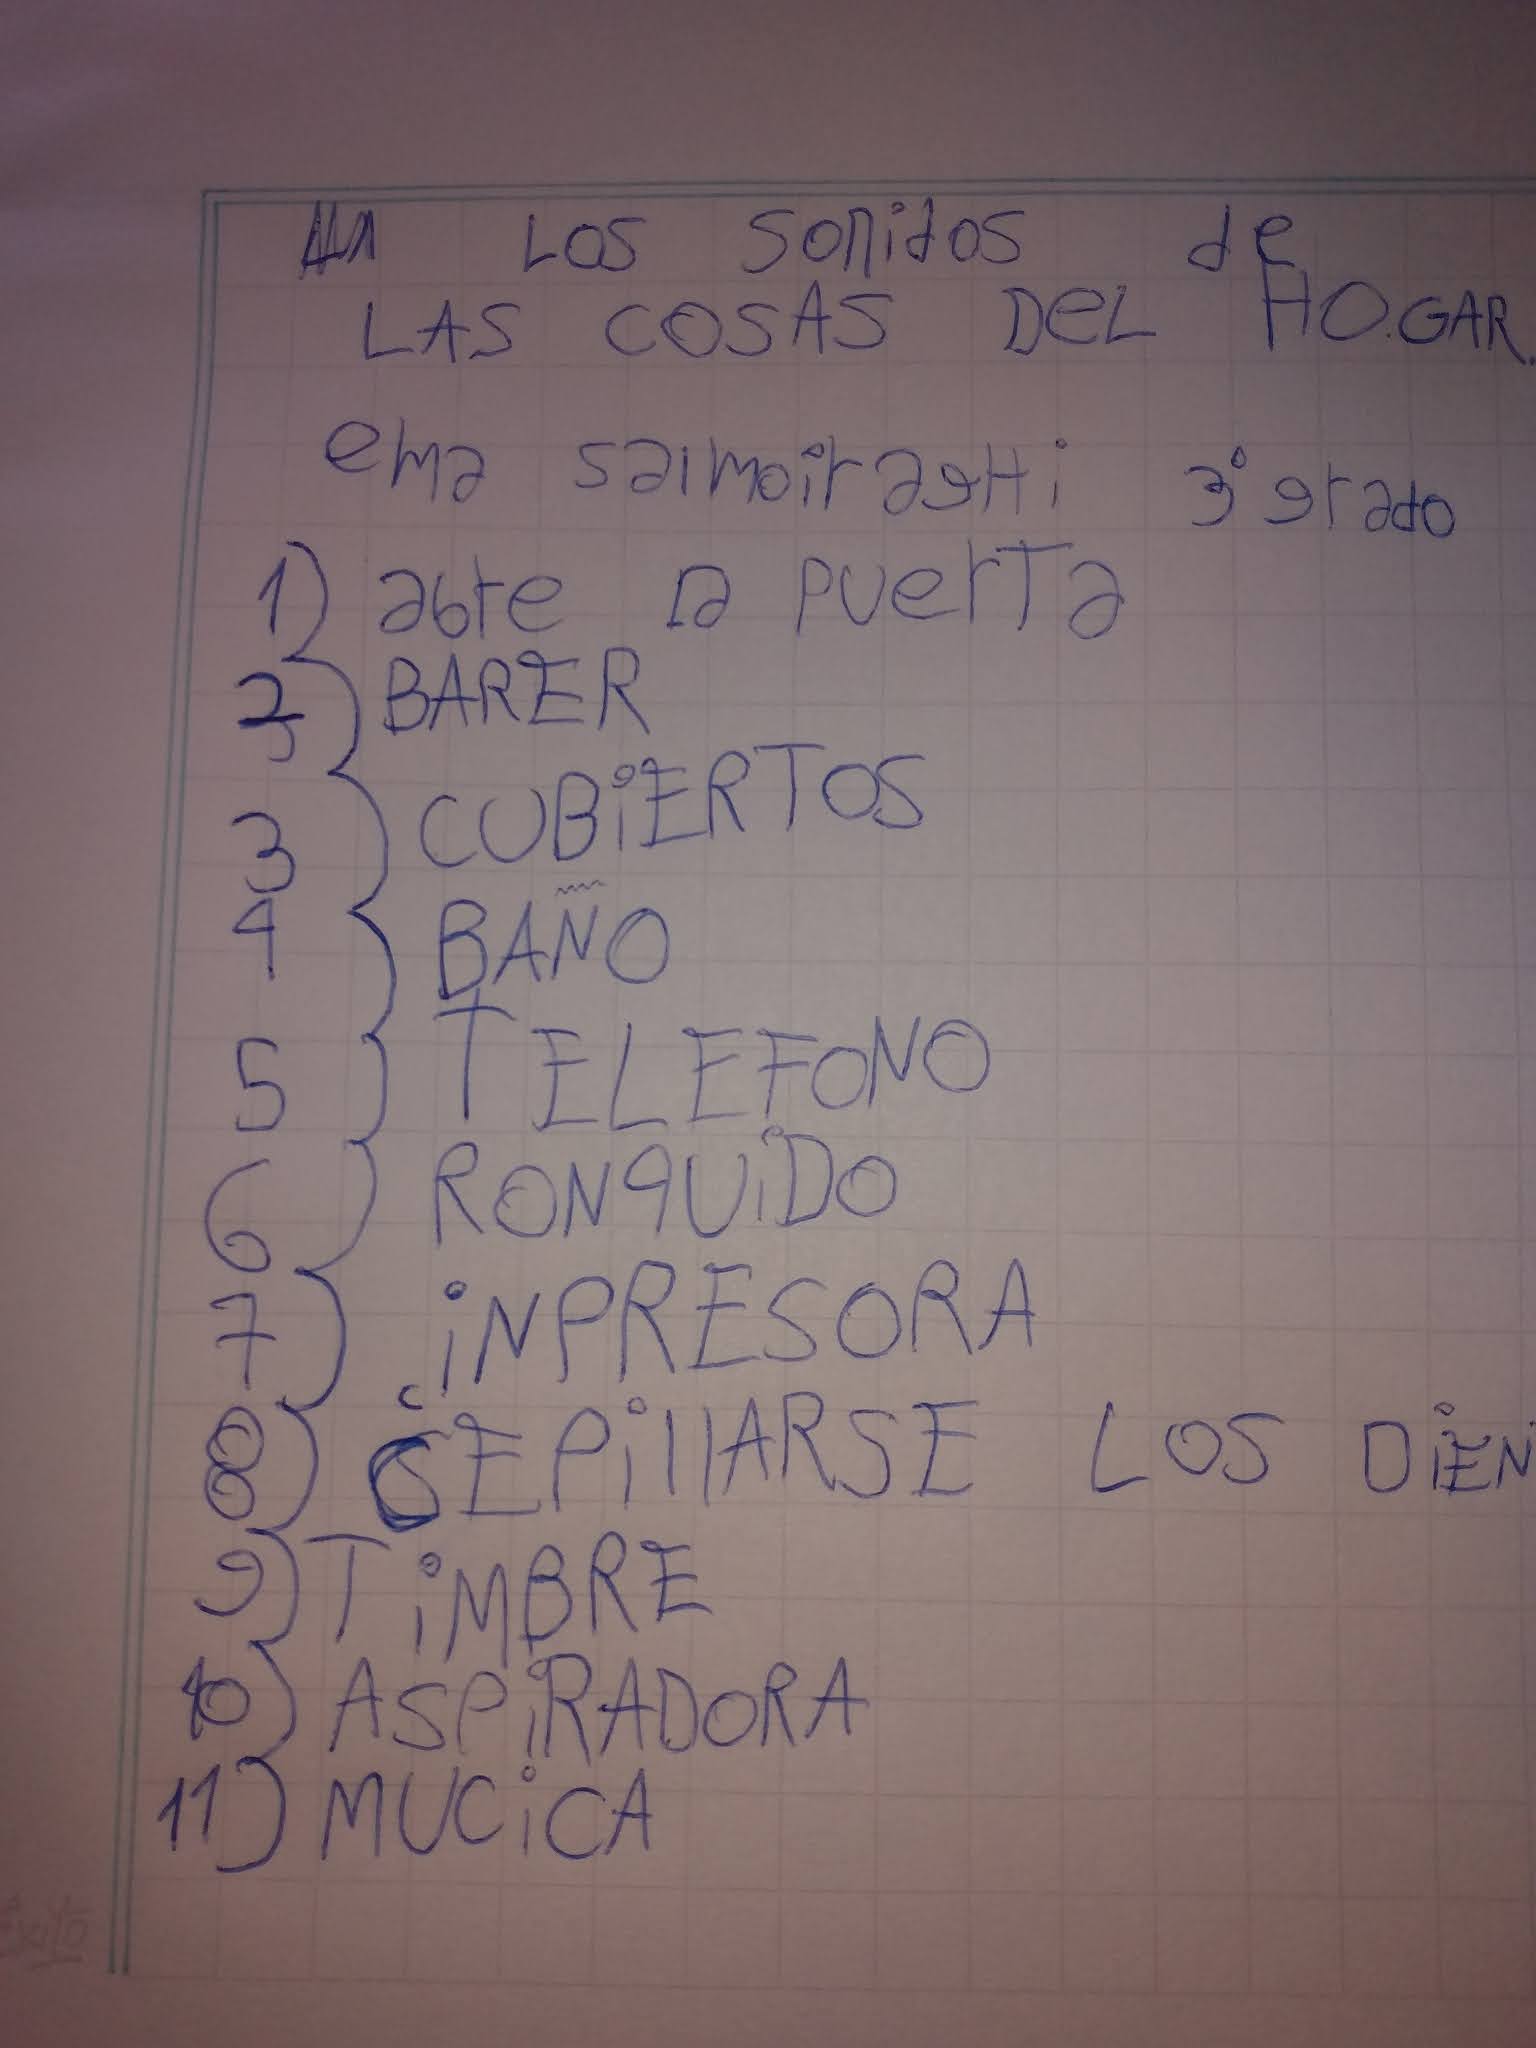 Los sonidos de
LAS COSAS DEL HOGAR.
ema saimoiraghi 3° grado
1) abre la puerta
2) BARER
3) CUBiERTOS
4) BAÑO
5) TELEFONO
6) RONQUiDO
7) iNPRESORA
8) CEPillARSE LOS DiEN
9) TiMBRE
10) ASPiRADORA
11) MUCiCA
Éxito